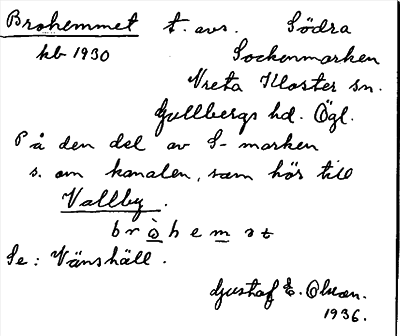 Brohemmet t. avs. Södra
kb 1930 Sockenmarken
Vreta Kloster sn.
Gullbergs hd. Ögl.
På den del av S-marken
s. om kanalen, som hör till
Vallby.
b r ò h e m ə t
Se: Vänshäll.
Gustaf E. Olsson.
1936.